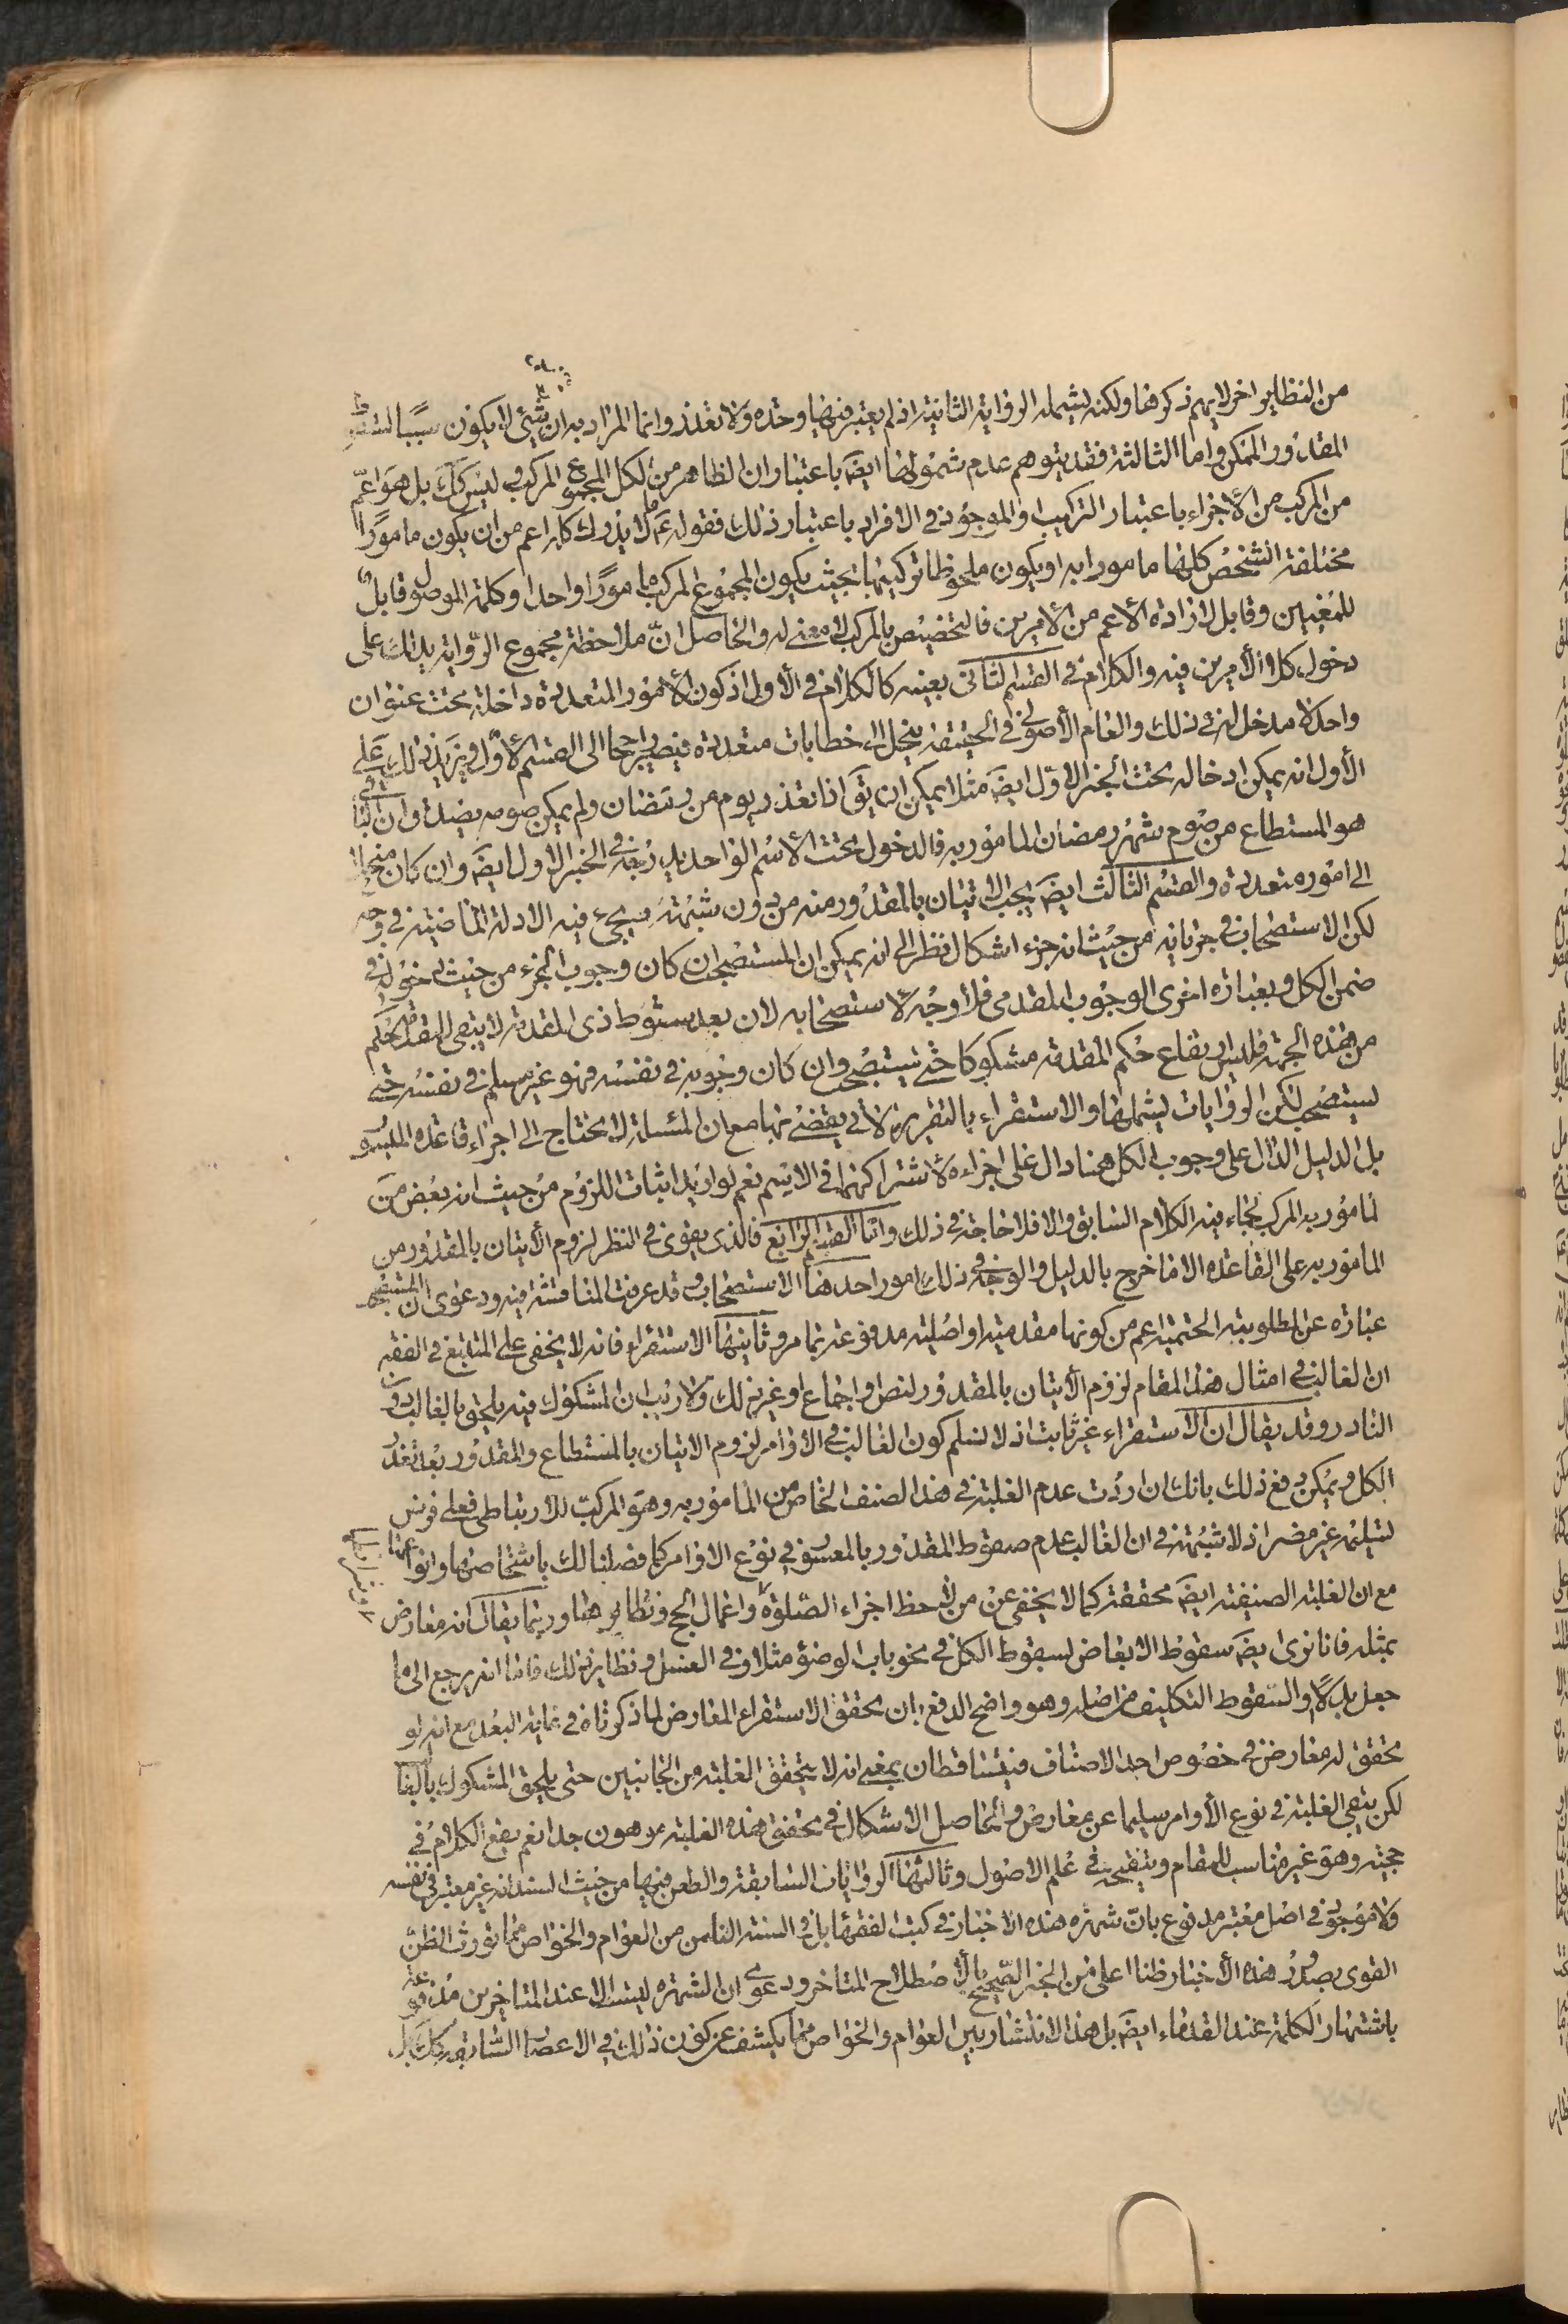 من النظاير اخر لايهم ذكرها ولكنه يشمله الرواية الثانية اذ لم يعتبر فيها وحده ولا تعدد وانما المراد به ان شيئ لا يكون سببا لسقوط
المقدور والممكن واما الثالثة فقد يتوهم عدم شمولها ايضَ باعتبار ان الظاهر من الكل المجموع المركب وليس كك بل هو اعمّ
من المركب من الأجزاء باعتبار التركيب او الموجود في الافراد باعتبار ذلك فقوله عَ ما لا يدرك كله اعم من ان يكون مامورًا
مختلفة الشخص كلها مامورا به او يكون ملحوظا تركيبها بحيث يكون المجموع المركب مامورًا واحدا وكلمة الموصول قابل
للمعنيين وقابل لارادة الأعم من الأمرين فالتخصيص بالمركب لا معنى له والحاصل انّ ملاحظة مجموع الرّواية يدلك على
دخول كلا الأمرين فيه والكلام في القسم الثاني بعينه كالكلام في الأول اذ كون الأمور المتعددة داخلة تحت عنوان
واحد لا مدخل له في ذلك والعام الأصولي في الحقيقة ينحل الى خطابات متعددة فيصير راجعا الى القسم الأوّل ويزيد ذلك على
الأول انه يمكن ادخاله تحت الخبر الاوّل ايضَ مثلا يمكن ان يقَ اذا تعذر يوم من رمضان ولم يمكن صومه يصدق ان الباقي
هو المستطاع من صوم شهر رمضان المامور به فالدخول تحت الاسم الواحد يدرجه في الخبر الاول ايضَ وان كان منحلا
الى امور متعددة والقسم الثالث ايضَ يجب الاتيان بالمقدور منه من دون شبهة ويجئ فيه الادلة الماضية في وجه
لكن الاستصحاب في جريانه من حيث انه جزء اشكال نظرا الى انه يمكن ان المستصحب ان كان وجوب الجزء من حيث دخوله في
ضمن الكل وبعبارة اخرى الوجوب المقدمي فلا وجه لاستصحابه لان بعد سقوط ذي المقدمة لا يبقى للمقدمة حكم
من هذه الجهة فليس بقاء حكم المقدمة مشكوكا حتى يستصحب وان كان وجوبه في نفسه فهو غير مسلم في نفسه حتى
يستصحب لكن الروايات يشملها والاستقراء بالتقرير الاتي يقضى بها مع ان المسئلة لا يحتاج الى اجراء قاعدة الميسور
بل الدليل الدال على وجوب الكل هنا دال على اجزاءه لاشتراكهما في الاسم نعم لو اريد اثبات اللزوم من حيث انه بعض من
المامور به المركب لجاء فيه الكلام السابق والا فلا حاجة في ذلك واما القسم الرابع فالذي يقوى في النظر لزوم الأتيان بالمقدور من
المامور به على القاعدة الا ما خرج بالدليل والوجه في ذلك امور احدها الاستصحاب وقد عرفت المناقشة فيه ودعوى ان المستصحب
عبارة عن المطلوبية الحتمية اعم من كونها مقدمية او اصلية مدفوعة بما مر وثانيها الاستقراء فانه لا يخفى على المتتبع في الفقه
ان الغالب في امثال هذا المقام لزوم الأتيان بالمقدور لنص او اجماع او غير ذلك ولا ريب ان المشكوك فيه يلحق بالغالب دون
النادر وقد يقال ان الاستقراء غير ثابت اذ لا نسلم كون الغالب في الاوامر لزوم الاتيان بالمستطاع والمقدور بعد تعذر
الكل ويمكن دفع ذلك بانك ان اردت عدم الغلبة في هذا الصنف الخاص من المامور به وهو المركب الارتباطي فعلى فرض
تسليمه غير مضر اذ لا شبهة في ان الغالب عدم سقوط المقدور بالمعسور في نوع الاوامر كما فصلنا لك باشخاصها وانواعها
مع ان الغلبة الصنفية ايضَ محققة كما لا يخفى عن من لاحظ اجزاء الصّلوة واعمال الحج ونظاير هما وربما يقال انه معارض
بمثله فانا نرى ايضَ سقوط الابعاض لسقوط الكل في نحو باب الوضوء مثلا وفي الغسل ونظاير ذلك فاما انه يرجع الى ما
جعل بدلًا او السّقوط التكليف من اصله وهو واضح الدفع بان تحقق الاستقراء المعارض لما ذكرناه في غاية البعد مع انه لو
تحقق له معارض في خصوص احد الاصناف فيتساقطان بمعنى انه لا يتحقق الغلبة من الجانبين حتى يلحق المشكوك بالغالب
لكن يبقى الغلبة في نوع الأوامر سليما عن معارض والحاصل الاشكال في تحقق هذه الغلبة موهون جدا نعم يقع الكلام في
حجيته وهو غير مناسب للمقام وتنقيحه في علم الاصول وثالثها الروايات السابقة والطعن فيها من حيث السند انه غير معتبر في نفسه
ولا موجود في اصل معتبر مدفوع بانّ شهرة هذه الاخبار في كتب الفقهاء بل في السنة الناس من العوام والخواص مما يورث الظنّ
القوى بصدور هذه الأخبار ظنا اعلى من الخبر الصّحيح بالاصطلاح المتاخر ودعوى ان الشهرة ليست الا عند المتاخرين مدفوعة
باشتهار الكلمة عند القدماء ايضَ بل هذا الانتشار بين العوام والخواص مما يكشف عن كون ذلك في الاعصار السّابقة كك بل